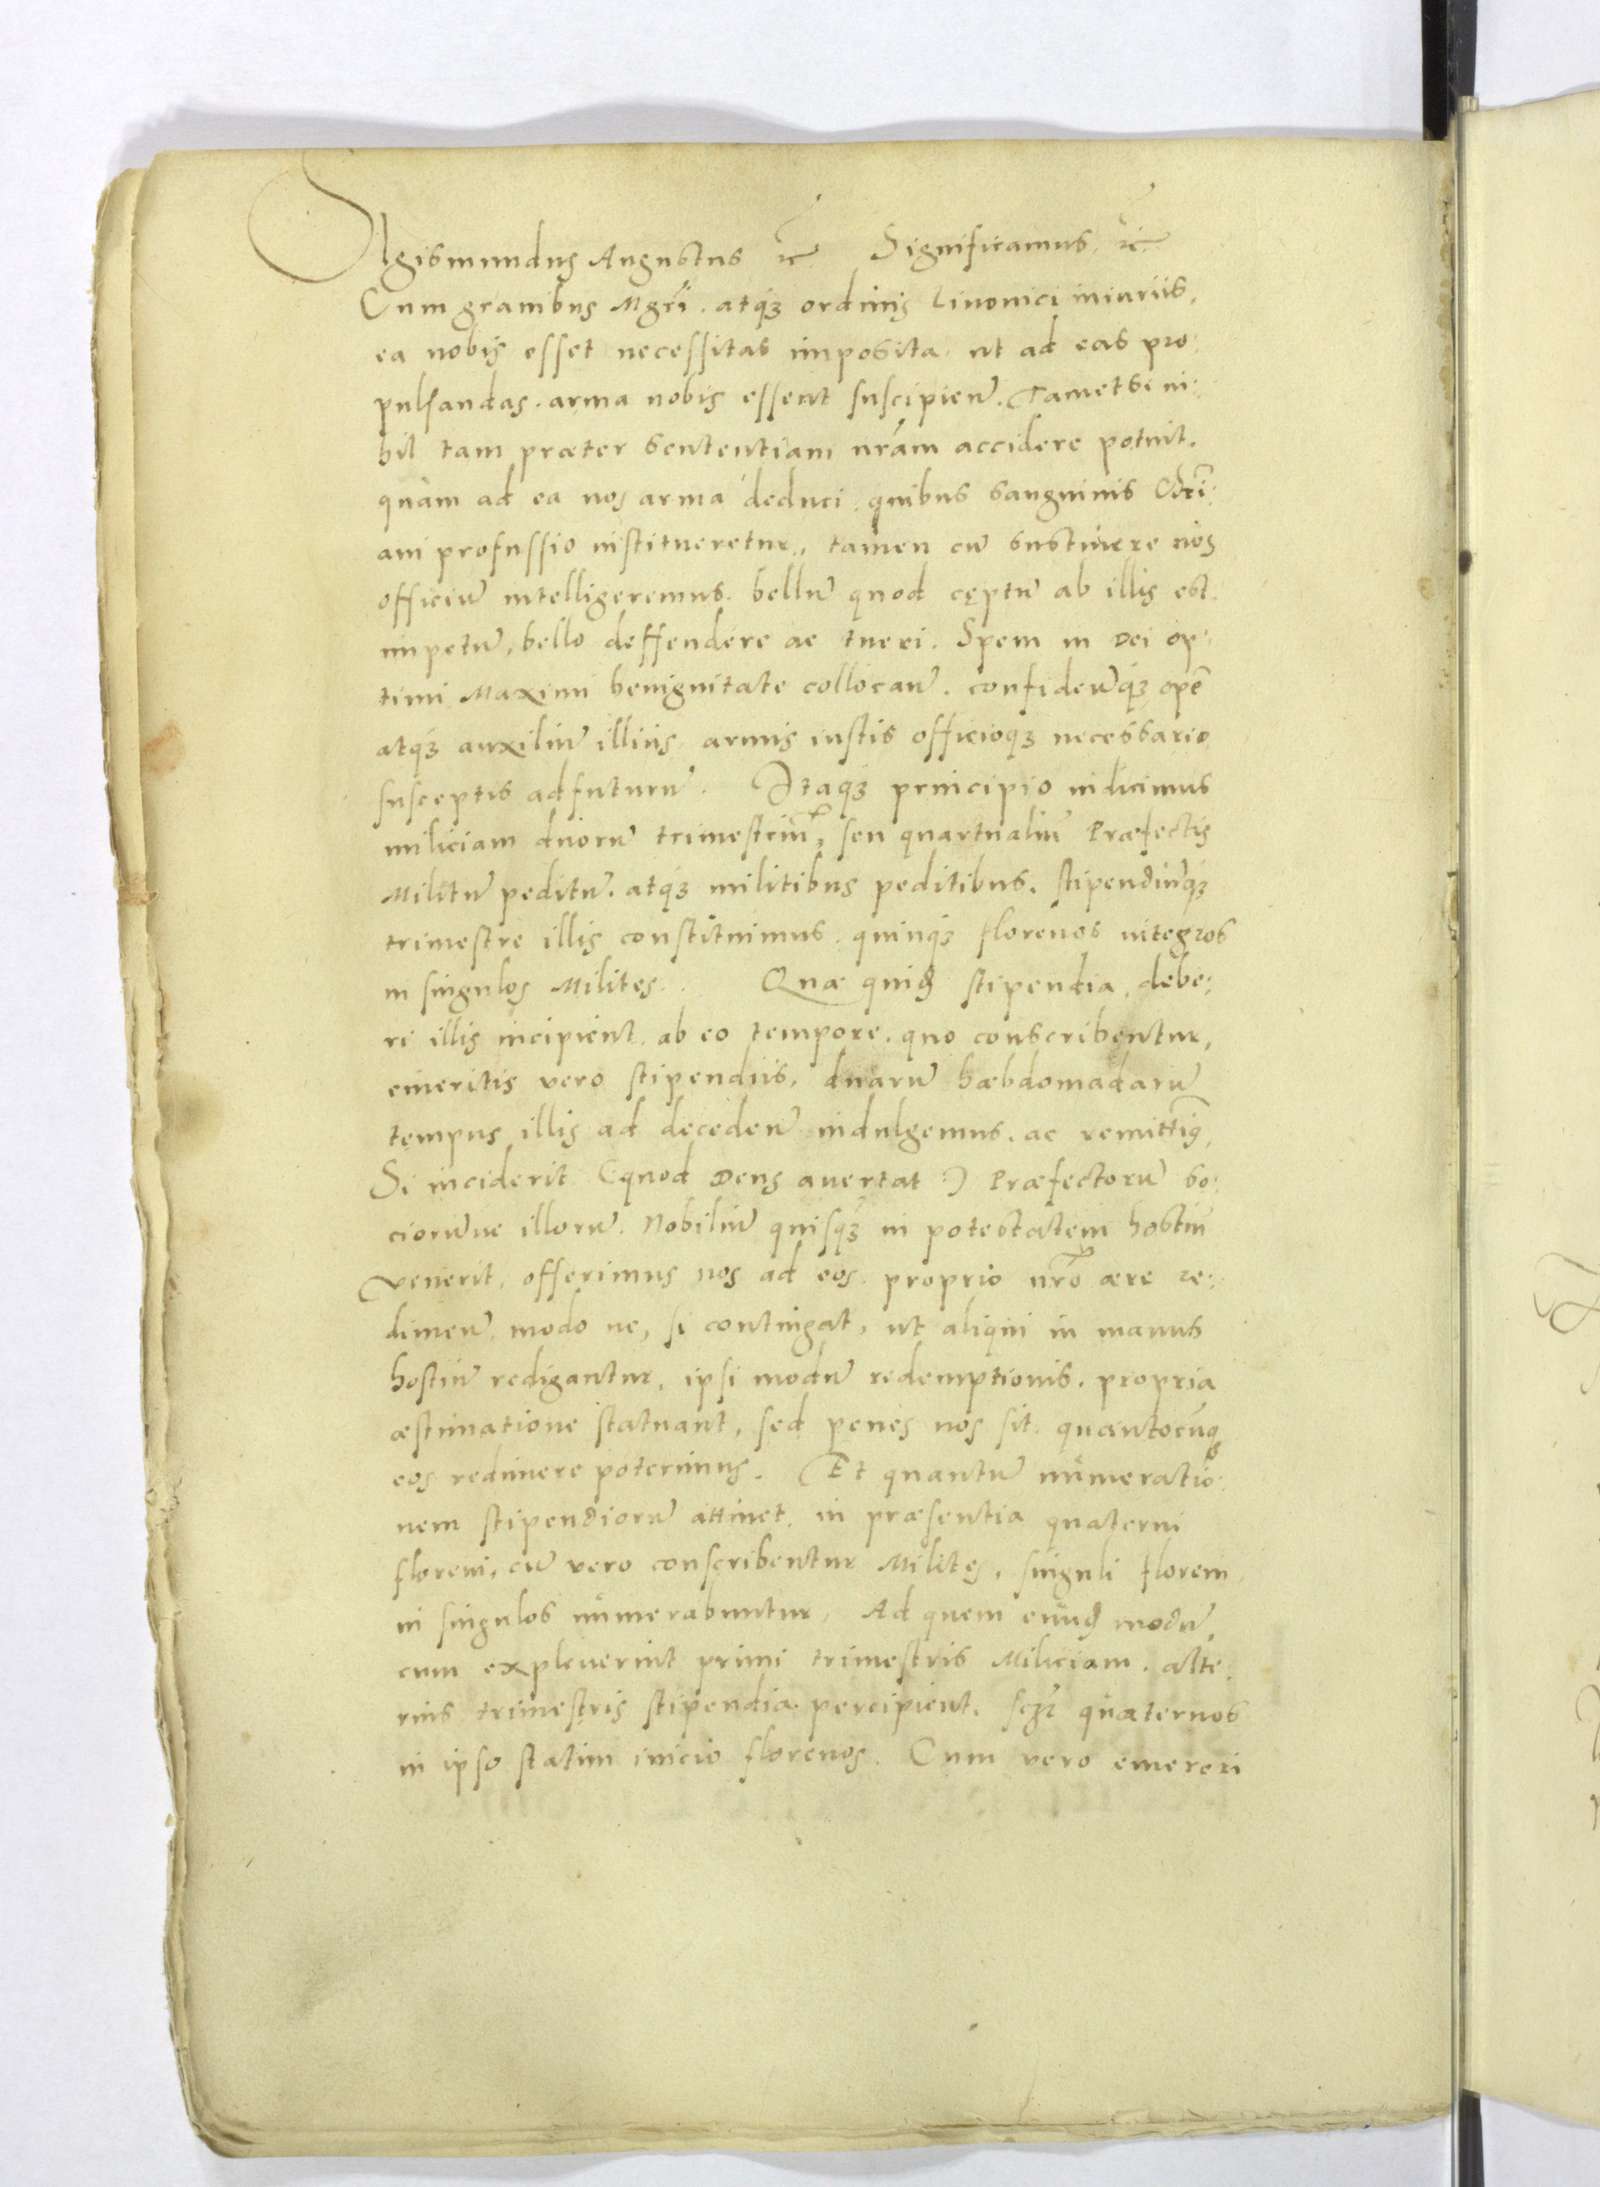 Sigismundus Augustus &c Significamus &c
Cum gravibus Mgri. atq́ꝫ ordinis Livonici iniuriis,
ea nobis esset necessitas imposita ut ad eas pro:
pulsandas. arma nobis essent suscipien̄. Tametsi ni:
hil tam præter sententiam nr̄am accidere potuit.
quàm ad ea nos arma deduci quibus sanguinis Chr̄i:
ani profussio institueretur, tamen cū sustinere nos
officiū intelligeremus. bellū quod cęptū ab illis est.
impetū, bello deffendere ac tueri. Spem in Dei op:
timi Maximi benignitate collocan̄. confiden̄q́ꝫ opē
atq́ꝫ auxiliū illius armis iustis officioqꝫ necessario
susceptis adfuturū. Itaqꝫ principio indicimus
miliciam duorū trimestriū, seu quartualiū Præfectis
Militū peditū. atq́ꝫ militibus peditibus. stipendiūq́ꝫ
trimestre illis constituimus. quinqꝫ florenos integros
in singulos Milites. Quæ quid̄ stipendia debe:
ri illis incipient. ab eo tempore. quo conscribentur,
emeritis vero stipendiis, duarū hæbdomadarū
tempus illis ad deceden̄ indulgemus. ac remittim̄9
Si inciderit (quod Deus avertat) Præfectorū so:
ciorūve illorū. Nobiliū quisq́ꝫ in potestatem hostiū
venerit, offerimus nos ad eos proprio nr̄o ære re:
dimen̄, modo ne, si contingat, ut aliqui in manus
hostiū redigantur, ipsi modū redemptionis. propria
æstimatione statuant, sed penes nos sit. quantocūqꝫ
eos redimere poterimus. Et quantū numeratio:
nem stipendiorū attinet. in præsentia quaterni
floreni, cū vero conscribentur Milites, singuli floreni
in singulos numerabuntur, Ad quem eund̄ modū,
cum expleverint primi trimestris Miliciam. alte:
rius trimestris stipendia percipient. sc̄ꝫ quaternos
in ipso statim inicio florenos. Cum vero emereri